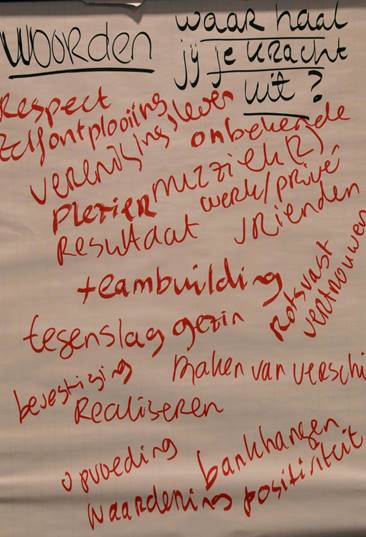 WOORDEN
waar haal
jij je kracht
uit?
Respect
Zelfontplooiing
verenigingsleven
onbekende
muziek(2)
Plezier
werk/privé
Resultaat
vrienden
teambuilding
Rotsvast
vertrouwen
tegenslag
gezin
bevestiging
maken van verschi
Realiseren
opvoeding
bankhangen
waardering
positiviteit